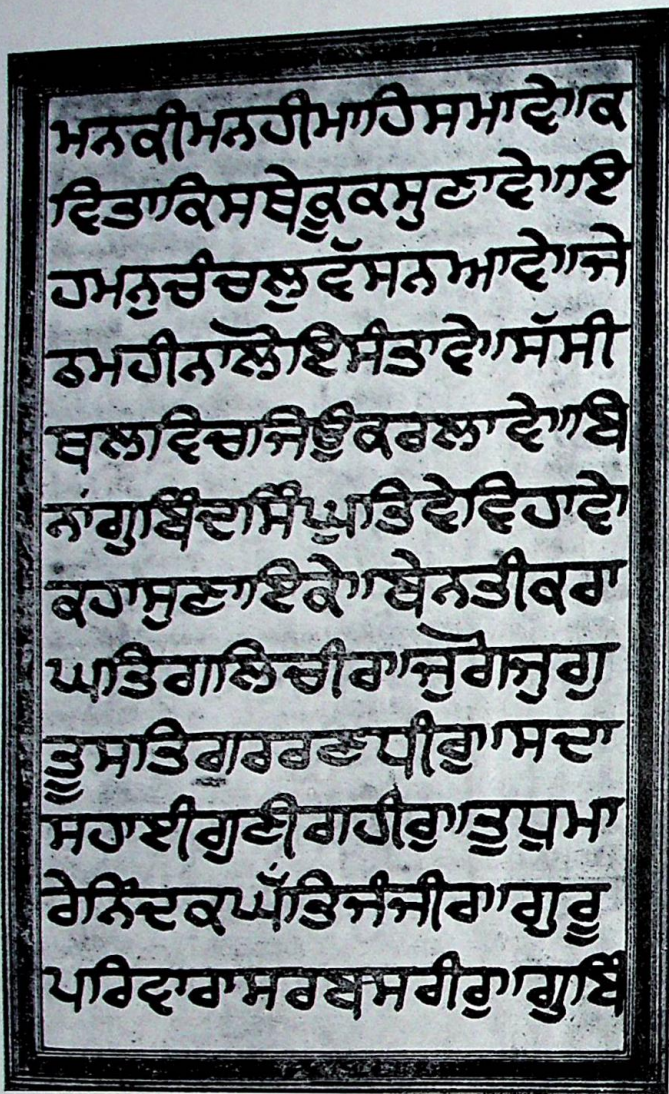 ਮਨਕੀਮਨਹੀਮਾਹਿਸਮਾਵੇ॥ਕ
ਵਿਤਾਕਿਸਥੇਕੂਕਸੁਣਾਵੇ॥ਇ
ਹਮਨੁਚੰਚਲੁਵੱਸਨਆਵੇ॥ਜੇ
ਠਮਹੀਨਾਲੋਇਸੰਤਾਵੇ॥ਸੱਸੀ
ਥਲਾਵਿਚਜਿਉਕਰਲਾਵੇ॥ਬਿ
ਨਾਂਗੁਬਿੰਦਸਿੰਘਅਤਿਵੇਵਿਹਾਵੇ
ਕਹਾਸੁਣਾਇਕੇ॥ਬੇਨਤੀਕਰਾ
ਘਤਿਗਲਿਚੀਰਾ॥ਜੁਗੋਜੁਗੁ
ਤੂਸਤਿਗੁਰਰਣਧੀਰੁ॥ਸਦਾ
ਸਹਾਈਗੁਣੀਗਹੀਰੁ॥ਤੁਧੁਮਾ
ਰੇਨਿੰਦਕਘੱਤਿਜੰਜੀਰਾ॥ਗੁਰੂ
ਪਰਿਵਾਰਾਸਰਬਸਰੀਰੁ॥ਗੁਬਿੰ